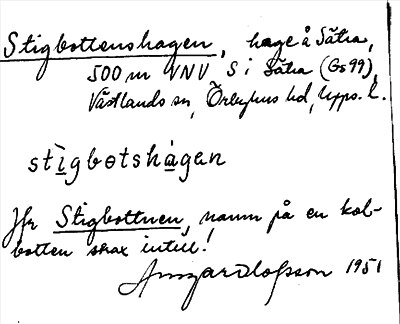 Stigbottenshagen, hage å Sätra,
500 m VNV S i Sätra (Gs 99),
Västlands sn, Örbyhus hd, Upps. l.
stìgbotshàgen
Jfr Stigbottnen, namn på en kol-
botten strax intill!
Olofsson 1951